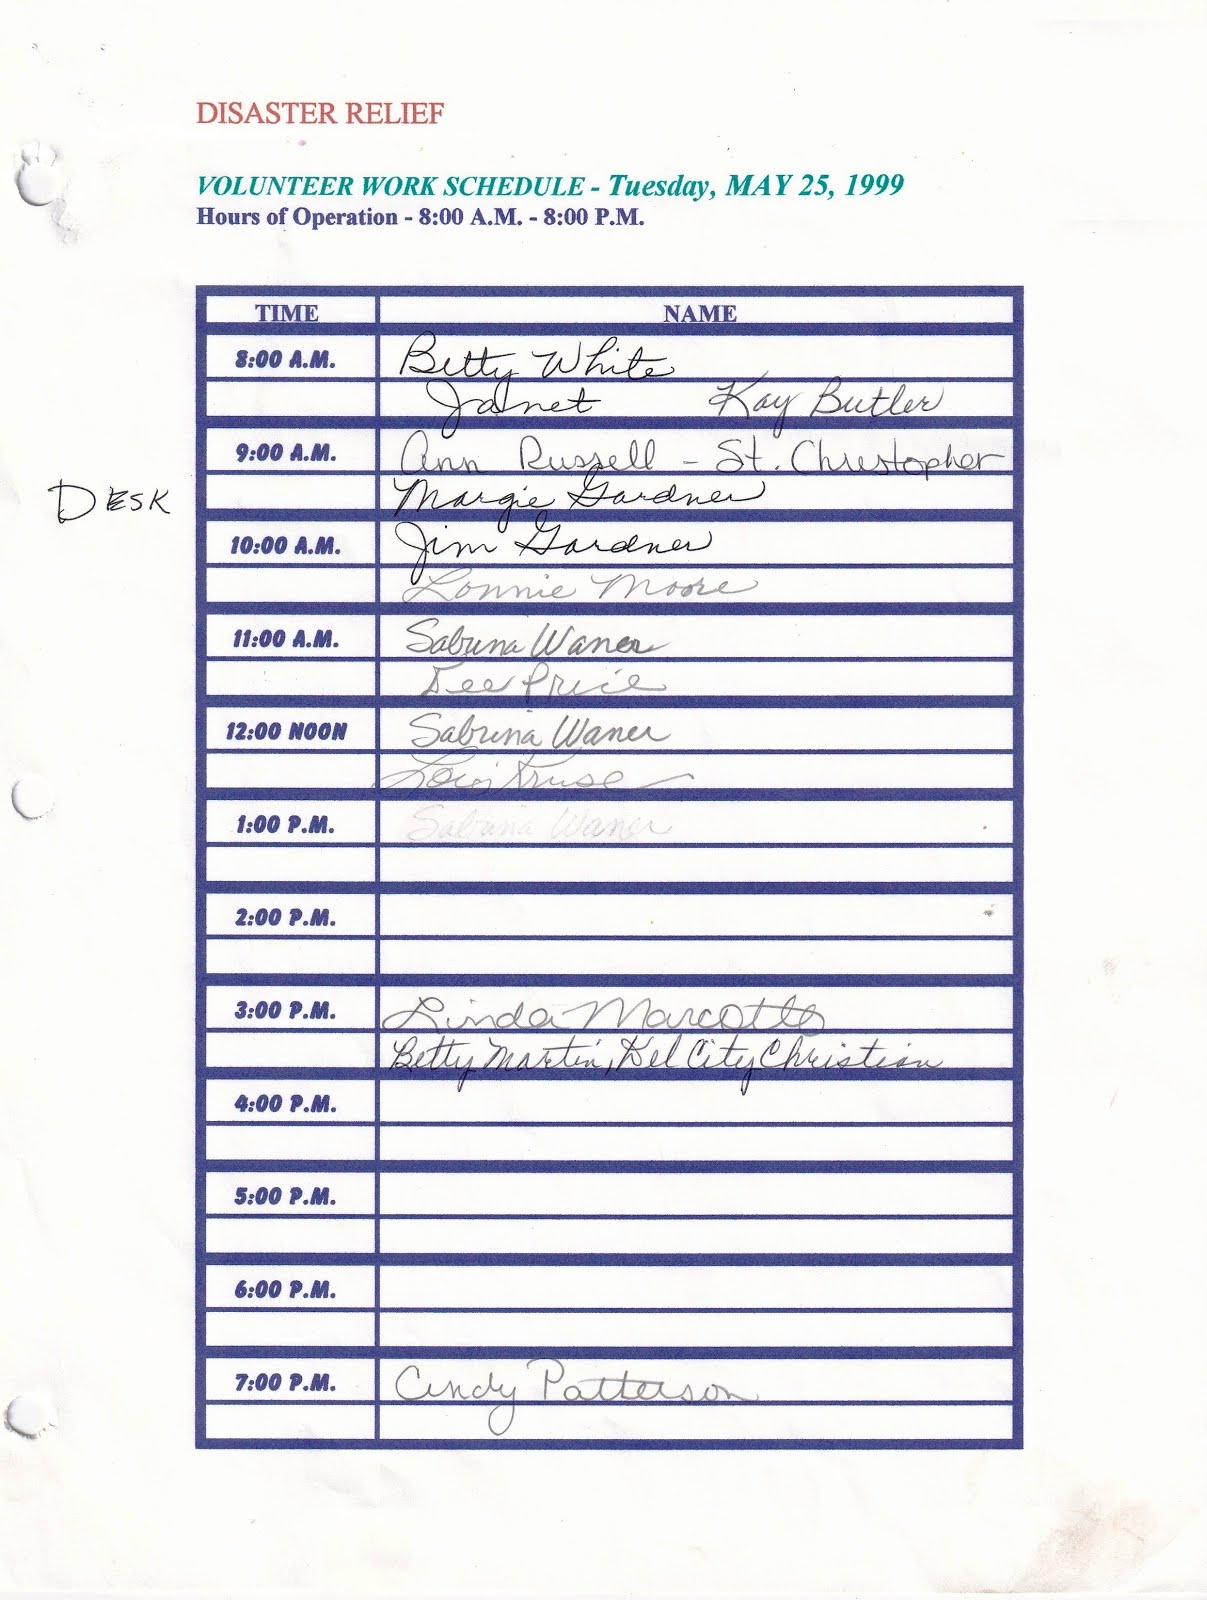 DISASTER RELIEF
VOLUNTEER WORK SCHEDULE - Tuesday, MAY 25, 1999
Hours of Operation - 8:00 A.M. - 8:00 P.M.
TIME NAME
8:00 A.M. Betty White
Janet Kay Butler
9:00 A.M. Ann Russell - St. Christopher
DESK Margie Gardner
10:00 A.M. Jim Gardner
Lonnie Moore
11:00 A.M. Sabrina Waner
Dee Price
12:00 NOON Sabrina Waner
Lois Kruse
1:00 P.M. Sabrina Waner
2:00 P.M.
3:00 P.M. Linda Marcotte
Betty Martin, Del City Christian
4:00 P.M.
5:00 P.M.
6:00 P.M.
7:00 P.M. Cindy Patterson